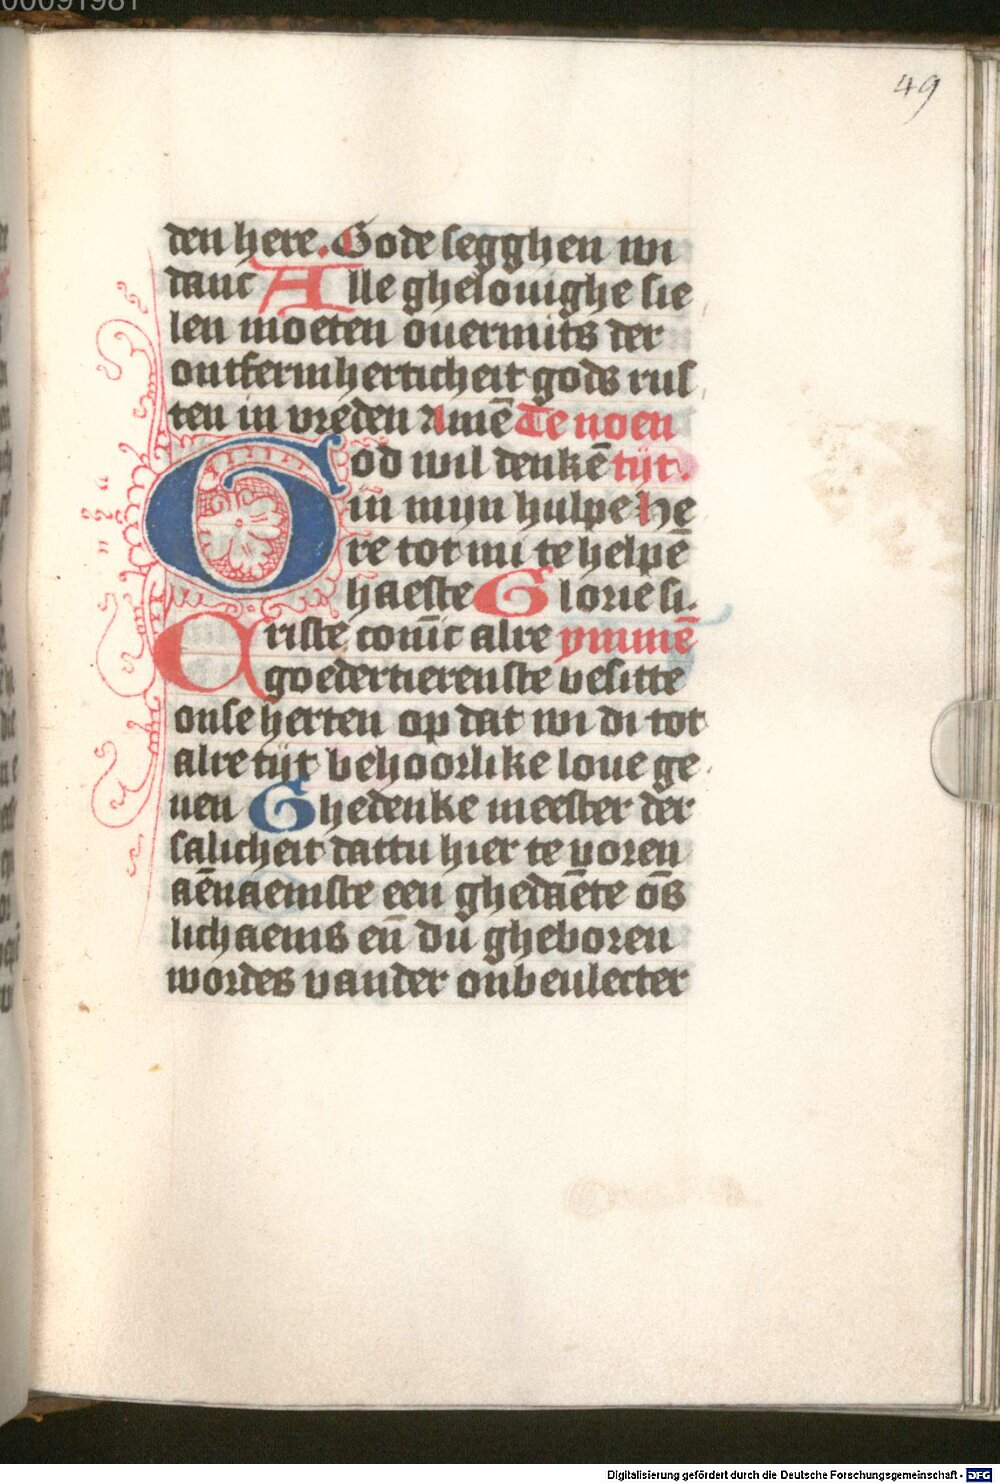 00091981
49
den here. Gode segghen wi
danc Alle ghelouighe sie
len moeten ouermits der
ontfermherticheit gods rus
ten in vreden Amē Te noen
God wil denkē tijt.
in mijn hulpe he
re tot mi te helpē
haeste Glorie si.
Criste conīc alre ymmē
goedertierenste besitte
onse herten op dat wi di tot
alre tijt behoorlike loue ge
uen Ghedenke meester der
salicheit dattu hier te voren
aēnaemste een ghedaēte ōs
lichaems eñ dū gheboren
wordes vander onbeulecter
Digitalisierung gefördert durch die Deutsche Forschungsgemeinschaft - DFG